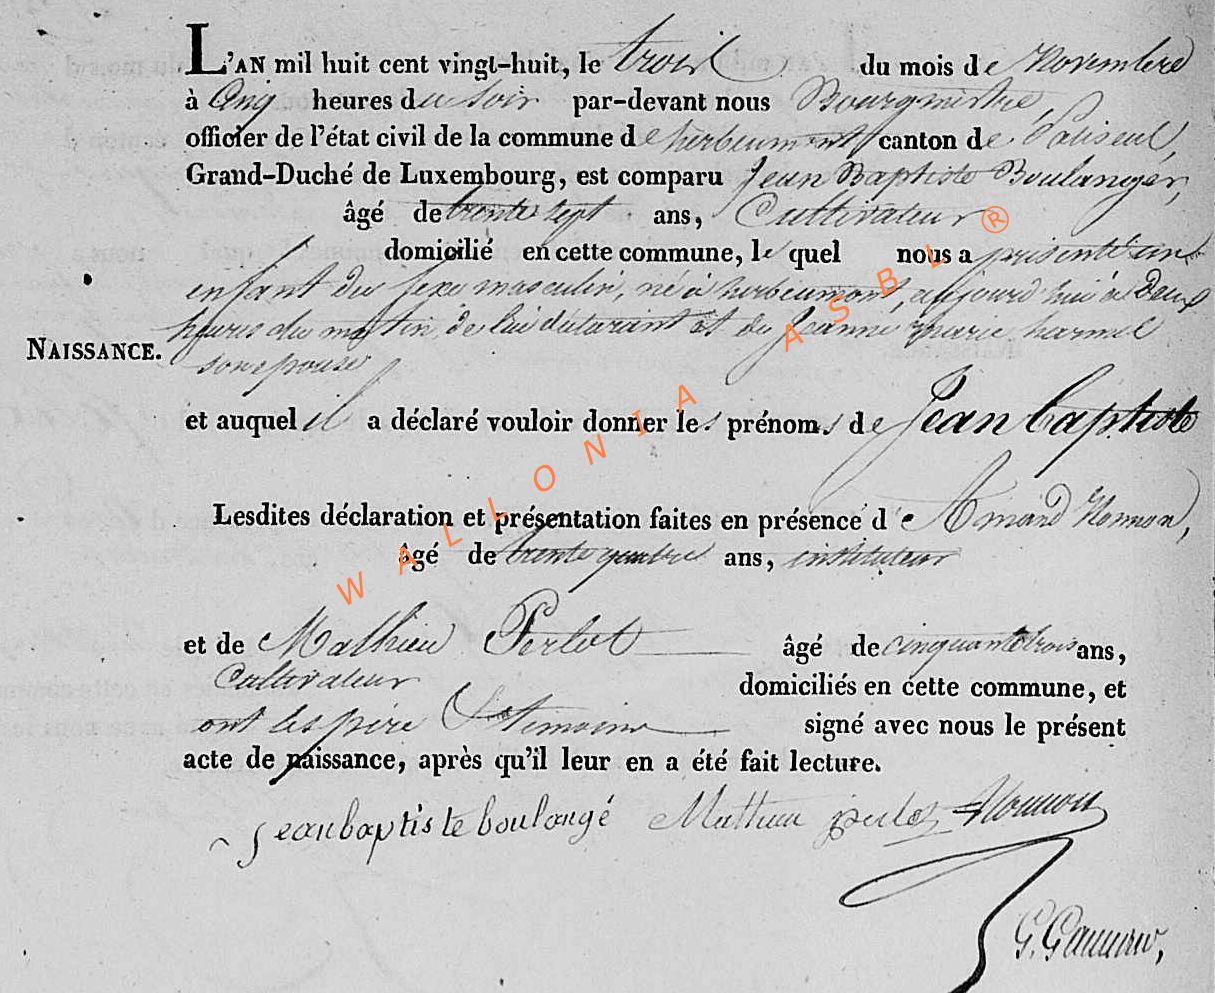 L'AN mil huit cent vingt-huit, le trois du mois de Novembre
à Cinq heures du soir par-devant nous Bourgmestre,
officier de l'état civil de la commune de herbeumont canton de Paliseul,
Grand-Duché de Luxembourg, est comparu Jean Baptiste Boulanger,
âgé de trente sept ans, Cultivateur
domicilié en cette commune, le quel nous a présenté un
enfant du sexe masculin, né à herbeumont, aujourd'hui à Deux
heures du matin, de lui déclarant et de Jeanne Marie harmel
son epouse
NAISSANCE.
et auquel il a déclaré vouloir donner les prénoms de Jean baptiste
Lesdites déclaration et présentation faites en présence de Amand
âgé de trente quatre ans, instituteur
et de Mathieu Perlot âgé de cinquante trois ans,
Cultivateur domiciliés en cette commune, et
ont les père & temoins signé avec nous le présent
acte de naissance, après qu'il leur en a été fait lecture.
jean baptiste boulangé Mathieu perlot
WALLONIA ASBL ®